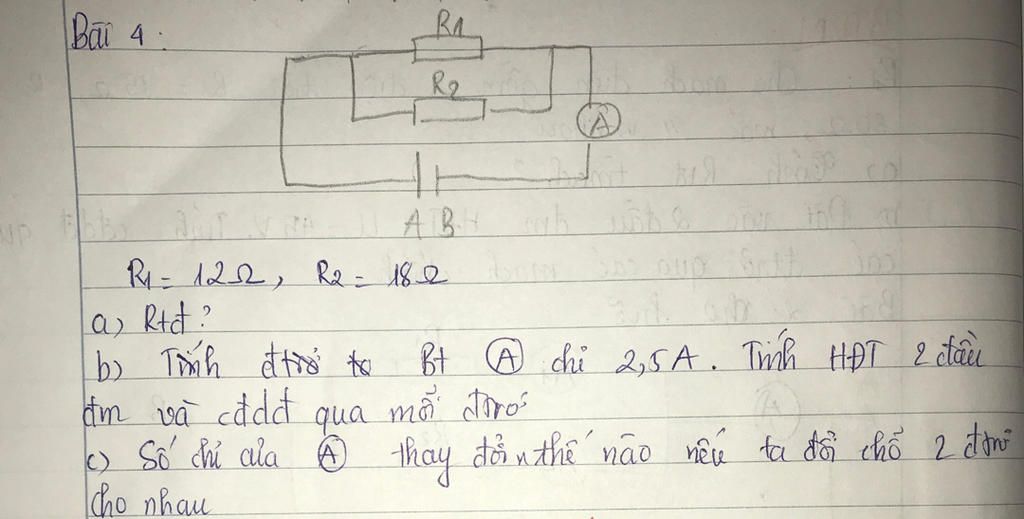 Bài 4:
R1
R2
A
A B
R1 = 12Ω, R2 = 18Ω
a) Rtđ?
b) Tính Bt A chỉ 2,5A. Tính HĐT 2 đầu
đm và cđdđ qua mỗi đtrở
c) Số chỉ của A thay đổi nthế nào nếu ta đổi chỗ 2 đtrở
cho nhau